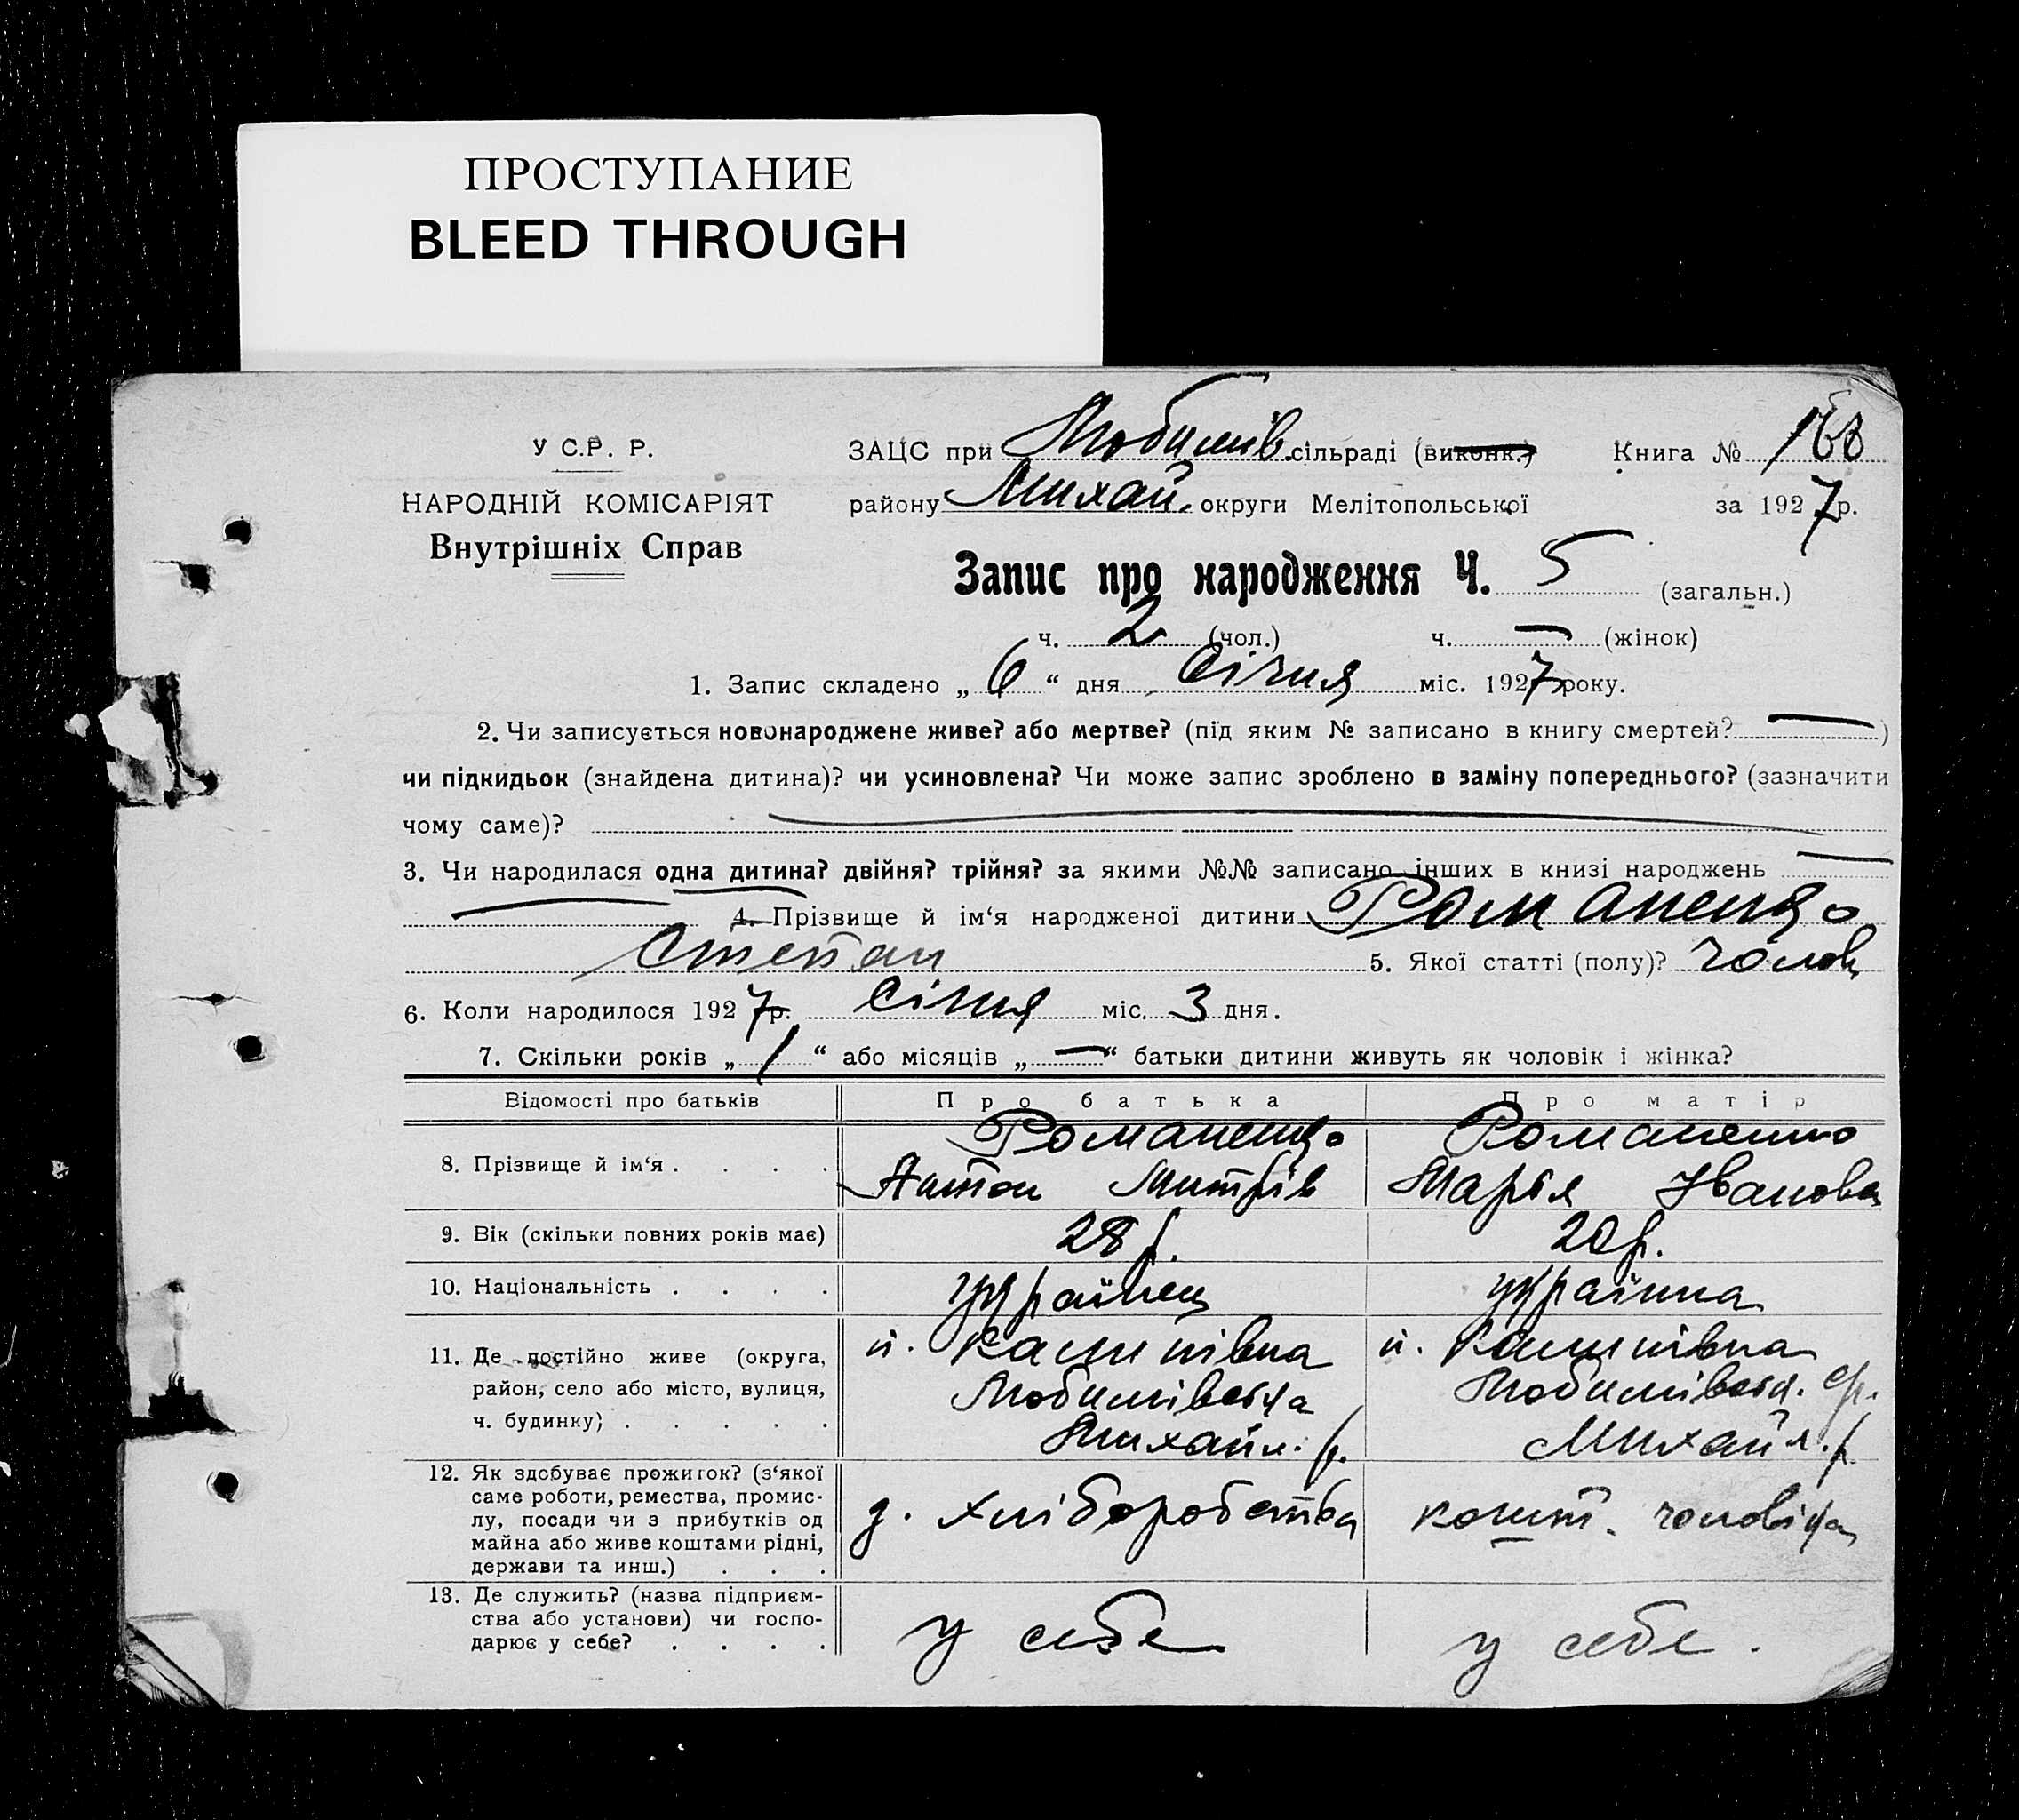 ПРОСТУПАНИЕ
BLEED THROUGH
У С.Р. Р.
НАРОДНІЙ КОМІСАРІЯТ
Внутрішніх Справ
ЗАЦС при Любимів. сільраді (виконк.) Книга № 168
району Михай. округи Мелітопольської за 1927 р.
Запис про народження Ч. 5 (загальн.)
ч. 2 (чол.) ч. — (жінок)
1. Запис складено „ 6 “ дня Січня міс. 1927 року.
2. Чи записується новонароджене живе? або мертве? (під яким № записано в книгу смертей? — )
чи підкидьок (знайдена дитина)? чи усиновлена? Чи може запис зроблено в заміну попереднього? (зазначити
чому саме)? —
3. Чи народилася одна дитина? двійня? трійня? за якими №№ записано інших в книзі народжень —
— 4. Прізвище й ім‘я народженої дитини Романенко
Степан 5. Якої статті (полу)? чолов
6. Коли народилося 1927 р. Січня міс. 3 дня.
7. Скільки років „ 1 “ або місяців „ — “ батьки дитини живуть як чоловік і жінка?
Відомості про батьків Про батька Про матір
8. Прізвище й ім‘я . . . . Романенко Антон Митрів Романенко Марія Іванова
9. Вік (скільки повних років має) 28 р. 20 р.
10. Національність . . . . українец українка
11. Де постійно живе (округа,
район, село або місто, вулиця,
ч. будинку) . . . . .
п. Калинівка
Любимівська
Михайл. р.
п. Калинівка
Любимівськ. ср.
Михайл. р.
12. Як здобуває прожиток? (з‘якої
саме роботи, ремества, промис-
лу, посади чи з прибутків од
майна або живе коштами рідні,
держави та инш.) . . .
з. хліборобства
кошт. чоловіка
13. Де служить? (назва підприєм-
ства або установи) чи госпо-
дарює у себе? . . . .
у себе
у себе.